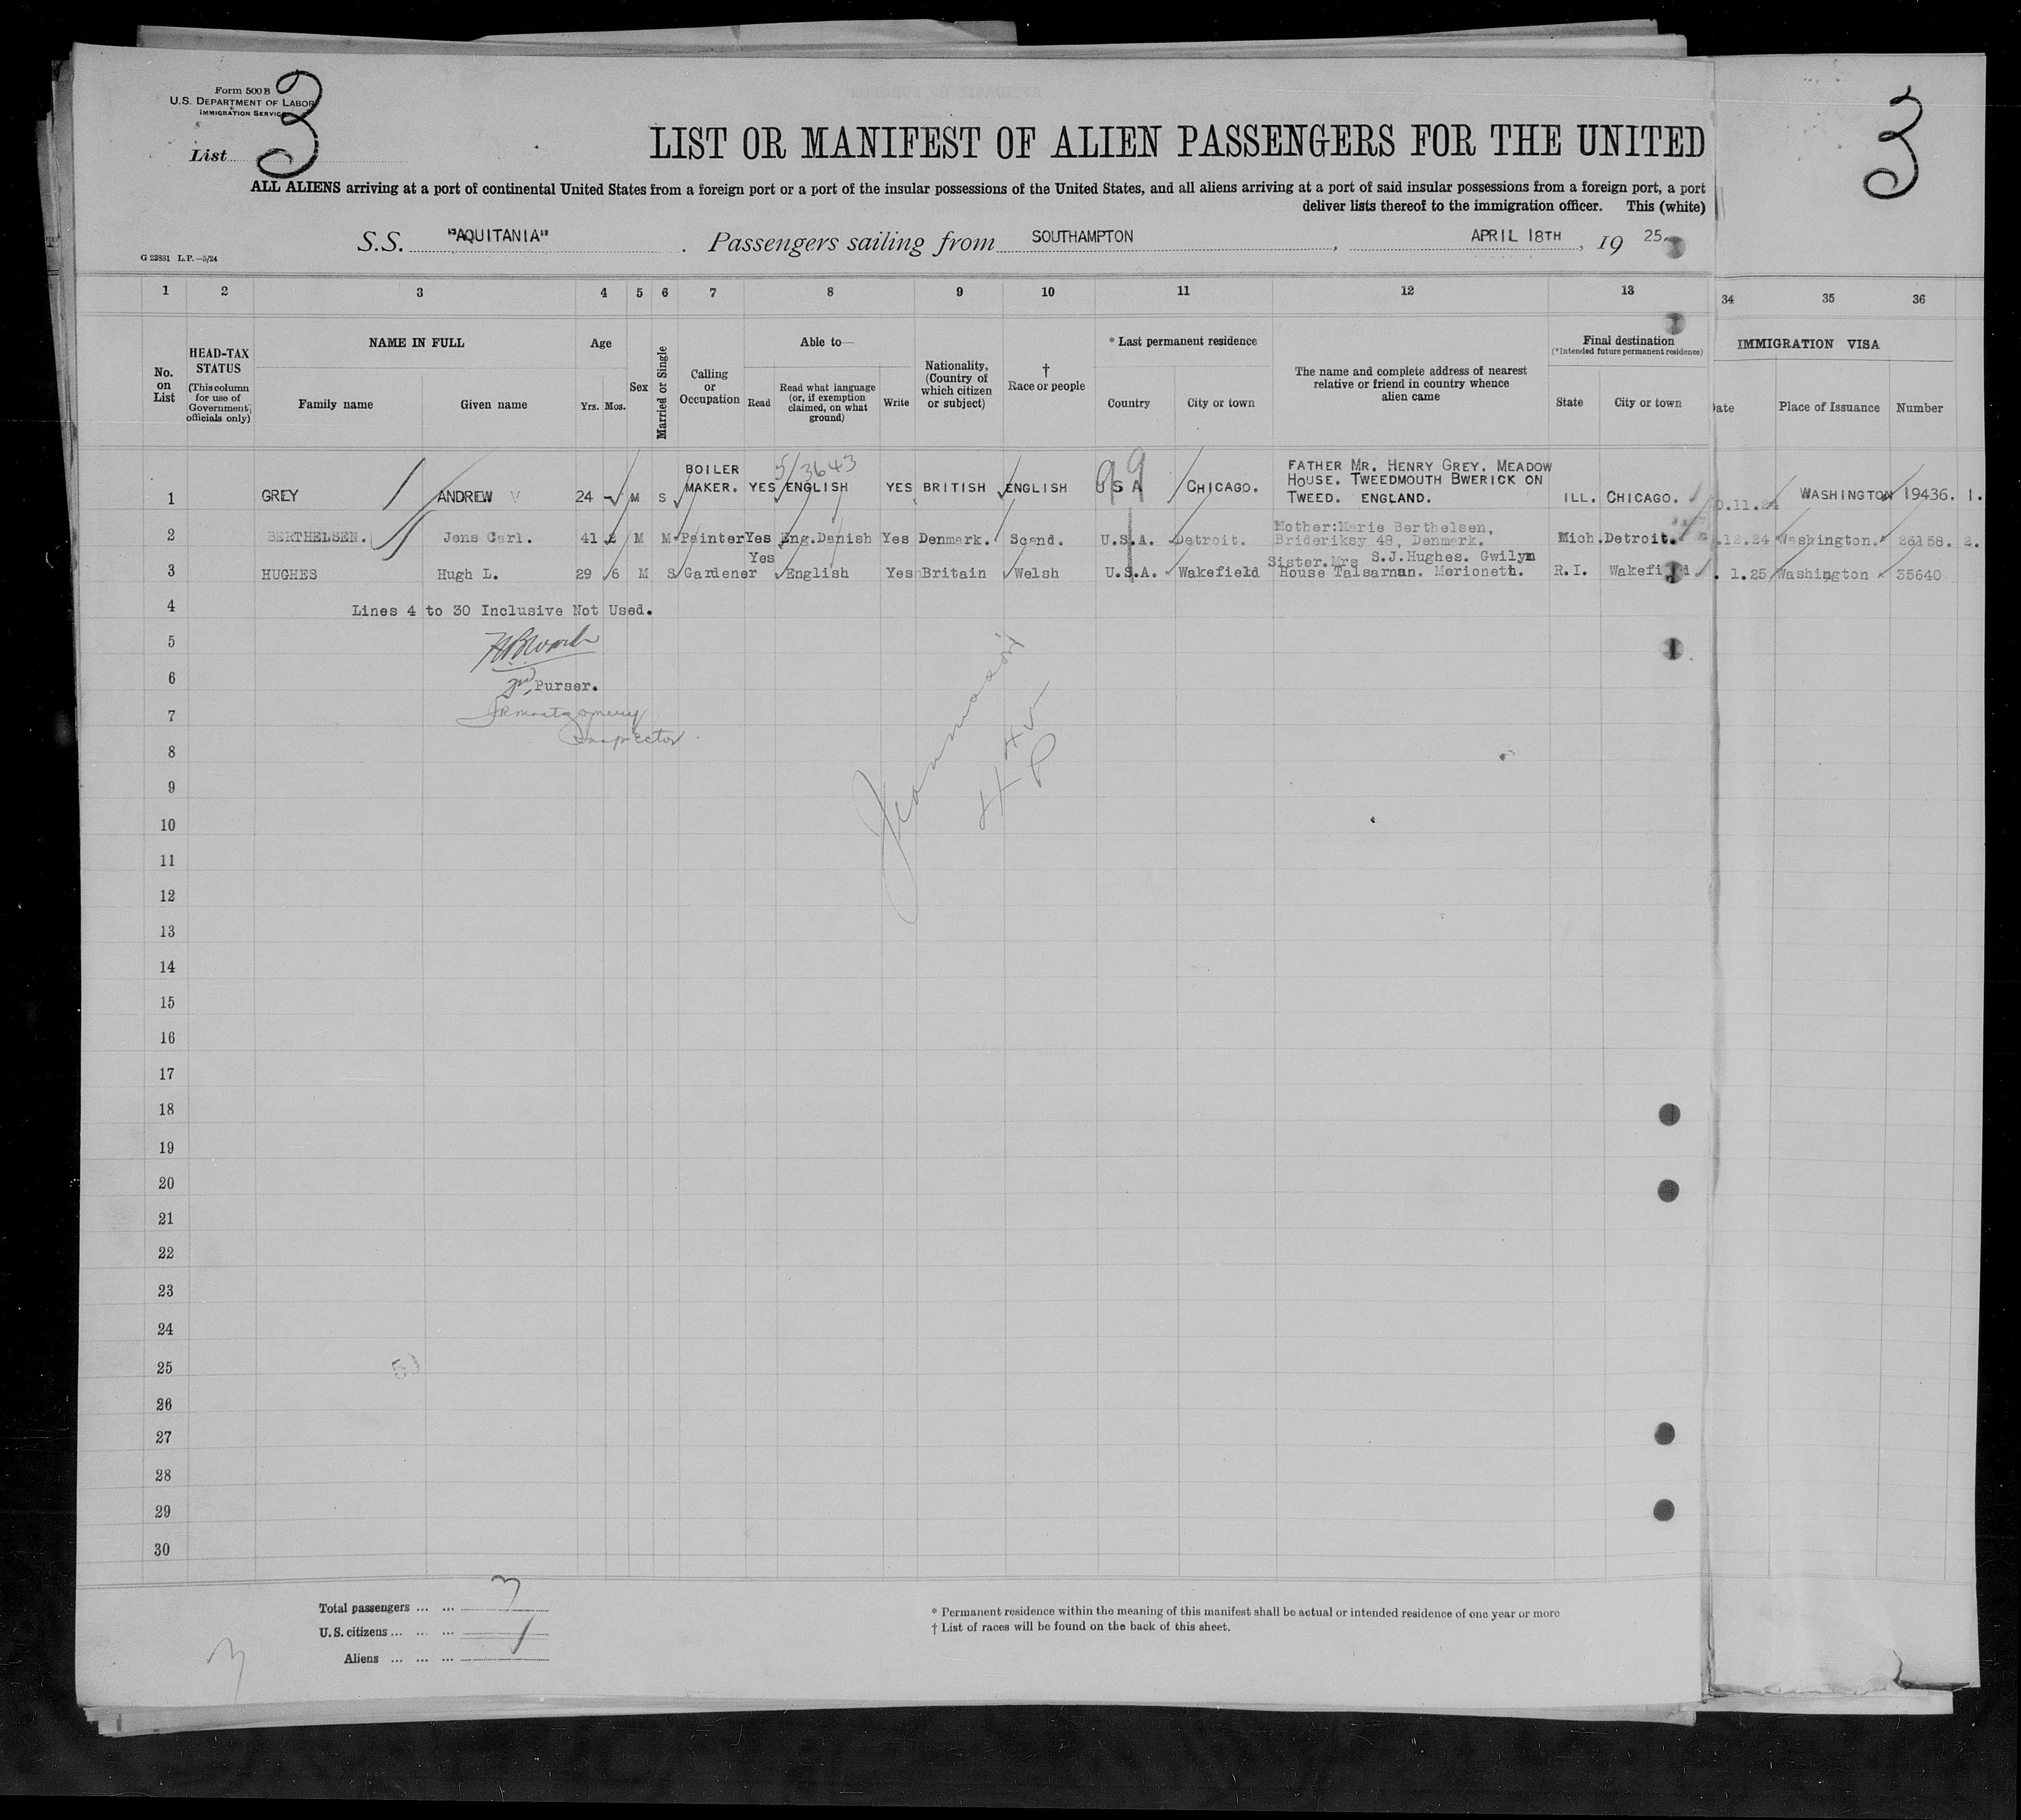 Form 500B
U.S. DEPARTMENT OF LABOR
IMMIGRATION SERVICE
List 3
3
LIST OR MANIFEST OF ALIEN PASSENGERS FOR THE UNITED
ALL ALIENS arriving at a port of continental United States from a foreign port or a port of the insular possessions of the United States, and all aliens arriving at a port of said insular possessions from a foreign port, a port
deliver lists thereof to the immigration officer. This (white)
S.S. "AQUITANIA". Passengers sailing from SOUTHAMPTON, APRIL 18TH, 1925.
G 23881 L.P.—5/24
1 2 3 4 5 6 7 8 9 10 11 12 13 34 35 36
No. on List
HEAD-TAX STATUS
(This column for use of Government officials only)
NAME IN FULL
Family name Given name
Age
Yrs. Mos.
Sex
Married or Single
Calling or Occupation
Able to—
Read
Read what language (or, if exemption claimed, on what ground)
Write
Nationality, (Country of which citizen or subject)
† Race or people
* Last permanent residence
Country City or town
The name and complete address of nearest relative or friend in country whence alien came
Final destination
(*Intended future permanent residence)
State City or town
IMMIGRATION VISA
ate Place of Issuance Number
5/3643
1 GREY ANDREW V 24 - M S BOILER MAKER. YES ENGLISH YES BRITISH ENGLISH USA CHICAGO. FATHER MR. HENRY GREY. MEADOW HOUSE. TWEEDMOUTH BWERICK ON TWEED. ENGLAND. ILL. CHICAGO. 0.11.24 WASHINGTON 19436. 1.
2 BERTHELSEN. Jens Carl. 41 M M Painter Yes Eng.Danish Yes Denmark. Scand. U.S.A. Detroit. Mother:Marie Berthelsen, Brideriksy 48, Denmark. Mich. Detroit. .12.24 Washington. 26158. 2.
3 HUGHES Hugh L. 29 6 M S Gardener Yes English Yes Britain Welsh U.S.A. Wakefield Sister.Mrs S.J.Hughes. Gwilym House Talsarnau. Merioneth. R.I. Wakefield . 1.25 Washington 35640
4 Lines 4 to 30 Inclusive Not Used.
5
6 Purser.
7 Montgomery
Inspector
8
9
10
11
12
13
14
15
16
17
18
19
20
21
22
23
24
25
26
27
28
29
30
Total passengers ... ... 3
U.S. citizens ... ... ...
Aliens ... ... ...
* Permanent residence within the meaning of this manifest shall be actual or intended residence of one year or more
† List of races will be found on the back of this sheet.